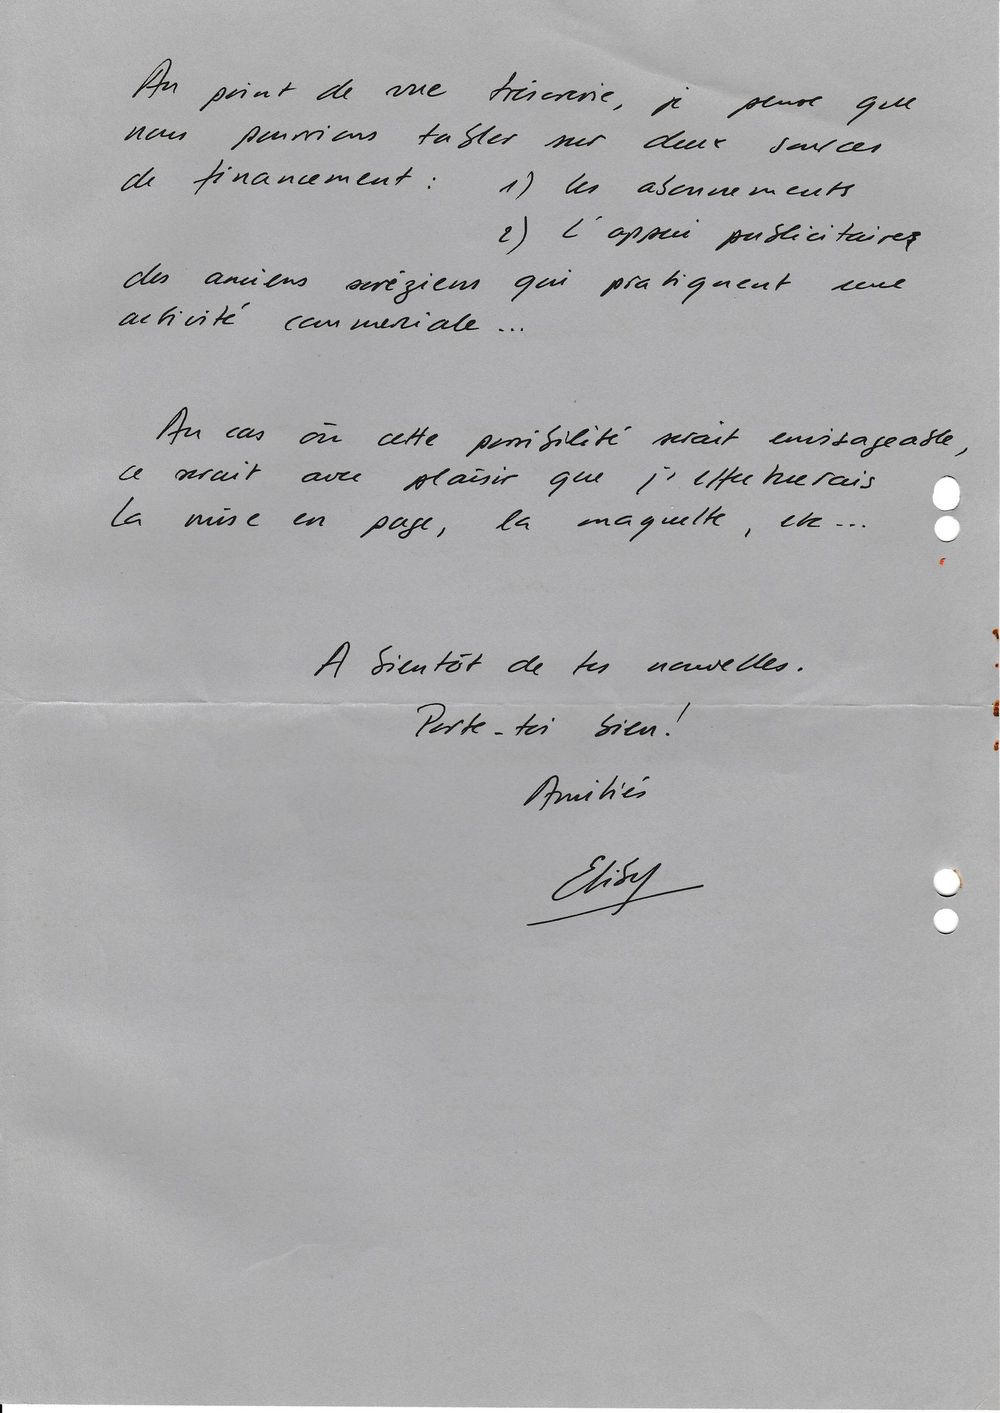 Au point de vue trésorerie, je pense que
nous pourrions tabler sur deux sources
de financement : 1) les abonnements
2) L'appui publicitaires
des anciens soréziens qui pratiquent une
activité commerciale ...
Au cas où cette possibilité serait envisageable,
ce serait avec plaisir que j'effectuerais
la mise en page, la maquette, etc...
A bientôt de tes nouvelles.
Porte-toi bien !
Amitiés